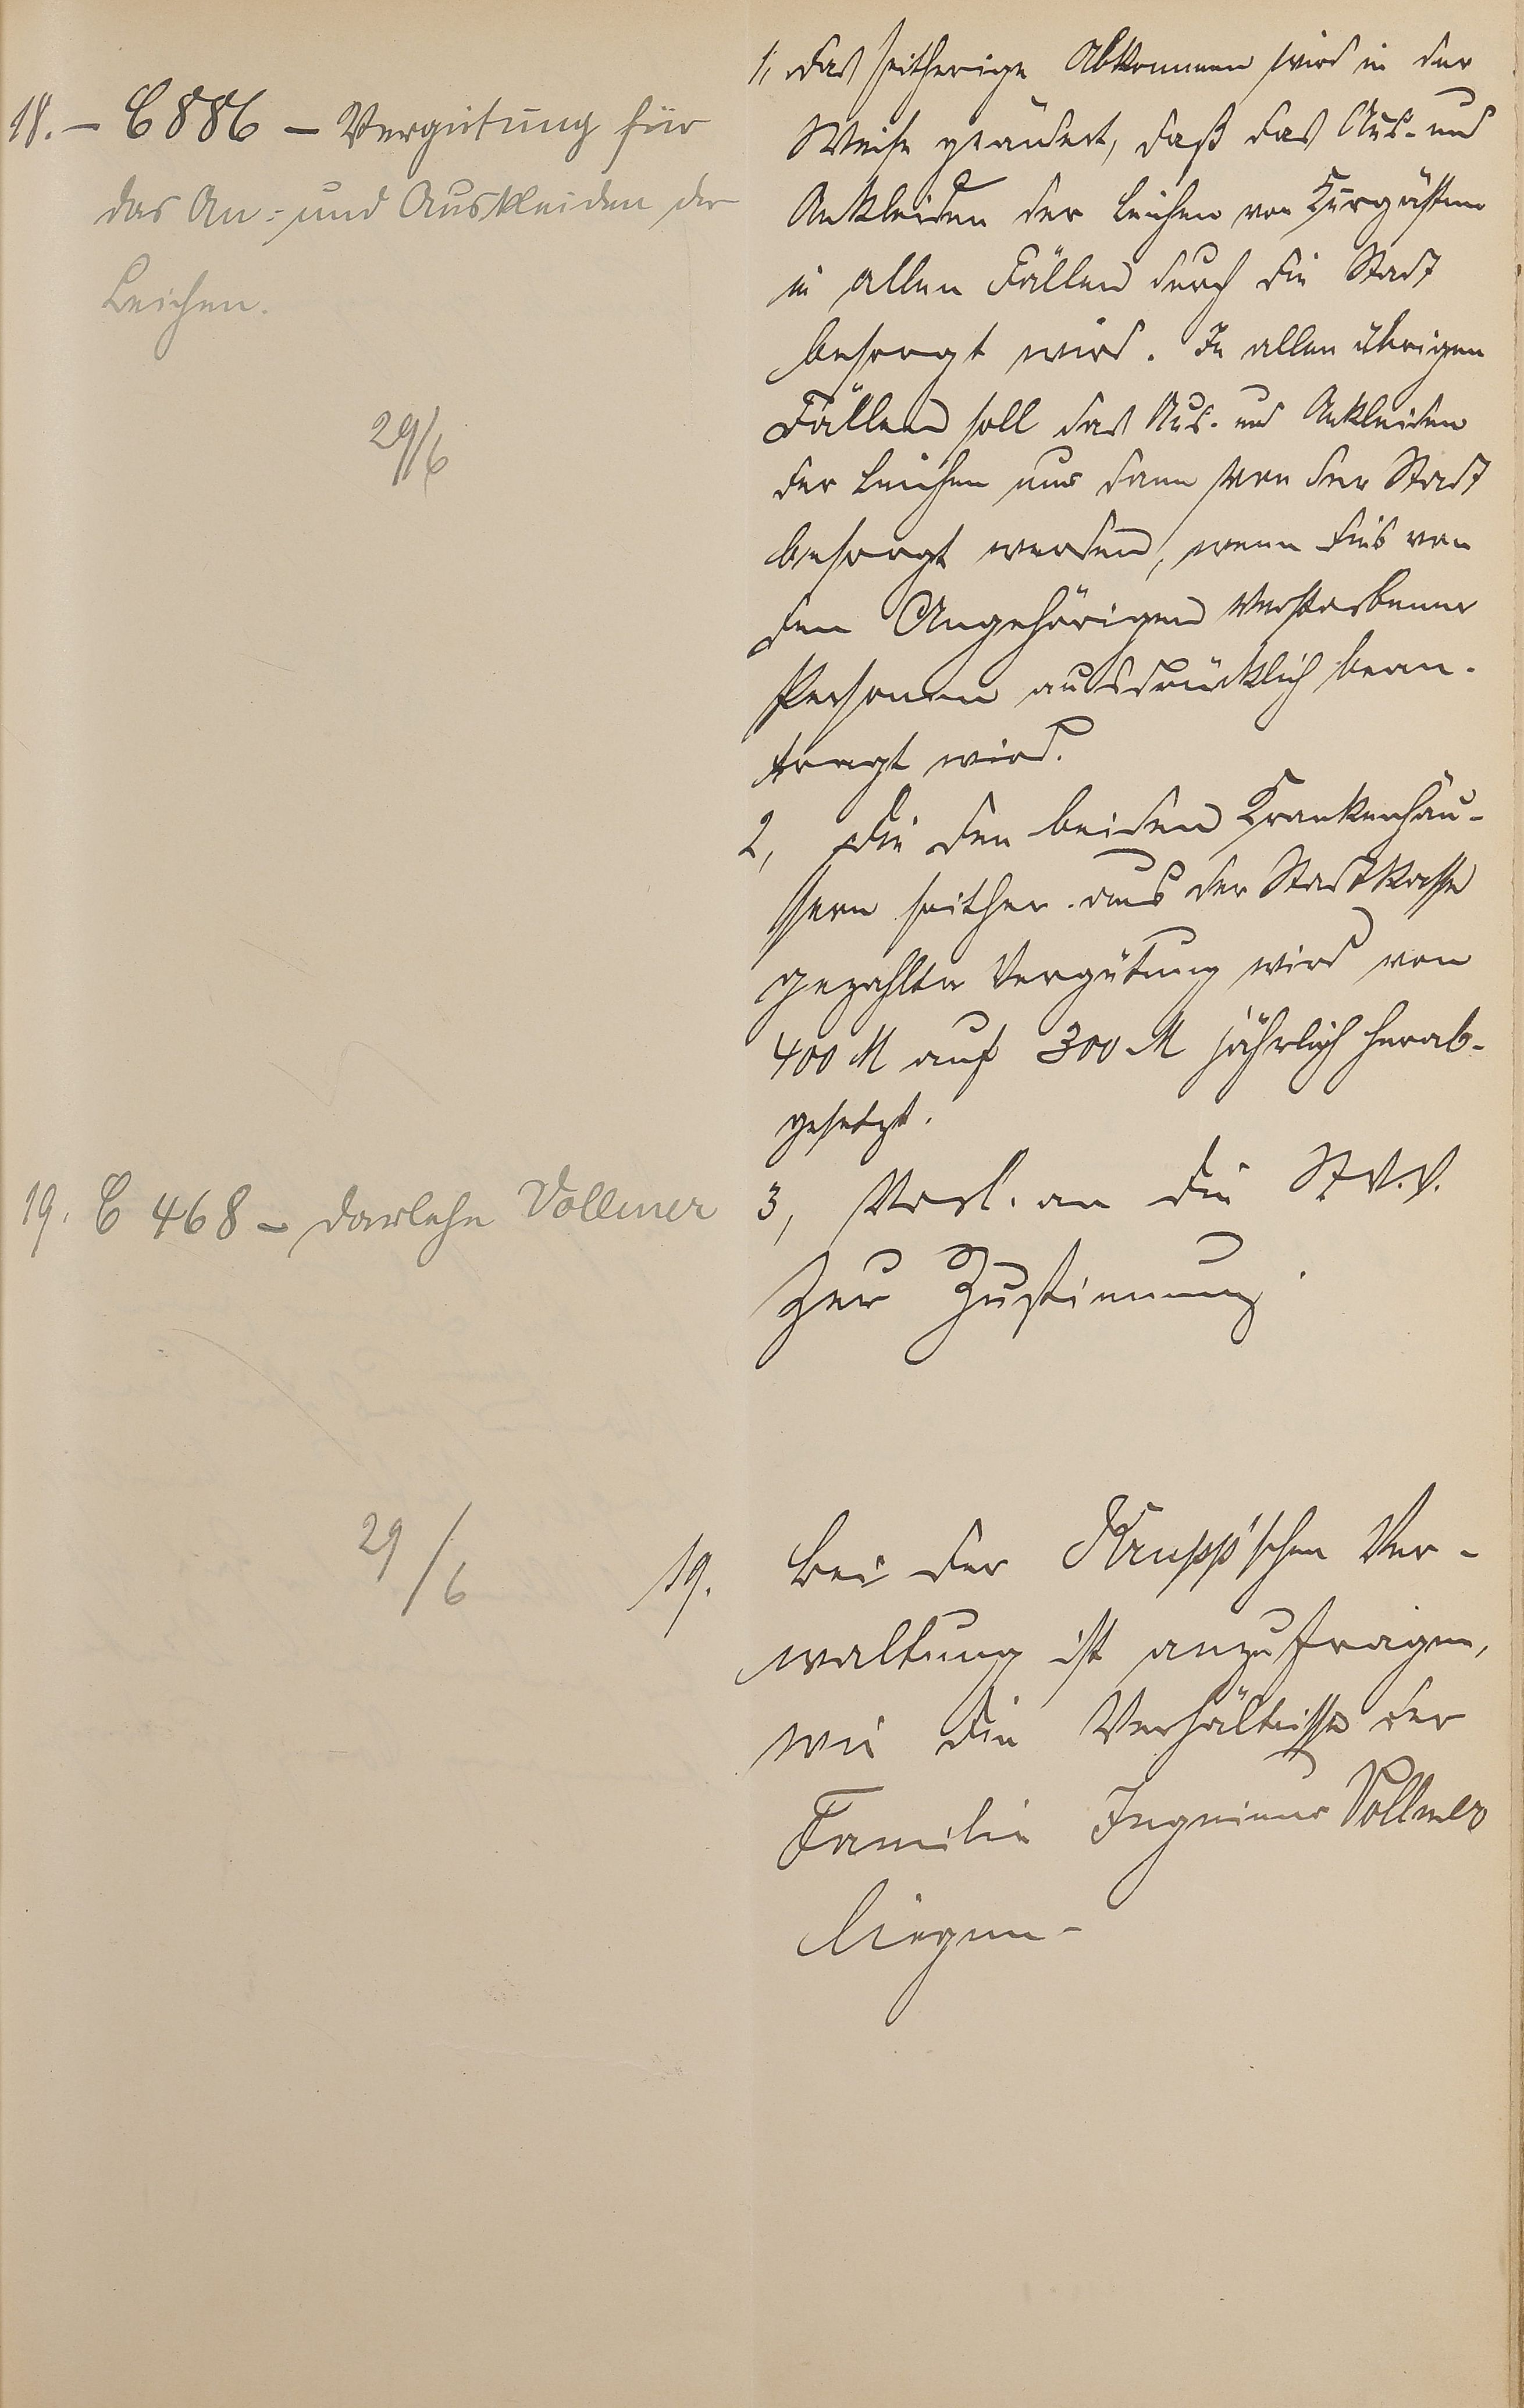 18. – C 886 – Vergütung für
das An- und Auskleiden der
Leichen.
29/6
1, Das seitherige Abkommen wird in der
Weise geändert, daß das Aus- und
Ankleiden der Leichen von Kurgästen
in allen Fällen durch die Stadt
besorgt wird. In allen übrigen
Fällen soll das Aus- und Ankleiden
der Leichen nur dann von der Stadt
besorgt werden, wenn dies von
den Angehörigen verstorbener
Personen ausdrücklich bean-
tragt wird.
2, Die den beiden Krankenhäu-
sern seither aus der Stadtkasse
gezahlte Vergütung wird von
400 M auf 300 M jährlich herab-
gesetzt.
3, Vorl. an die St.V.V.
zur Zustimmung.
19. C 468 – Darlehn Vollmer
29/6
19. Bei der Krupp'schen Ver-
waltung ist anzufragen,
wie die Verhältnisse der
Familie Ingenieur Vollmer
liegen-